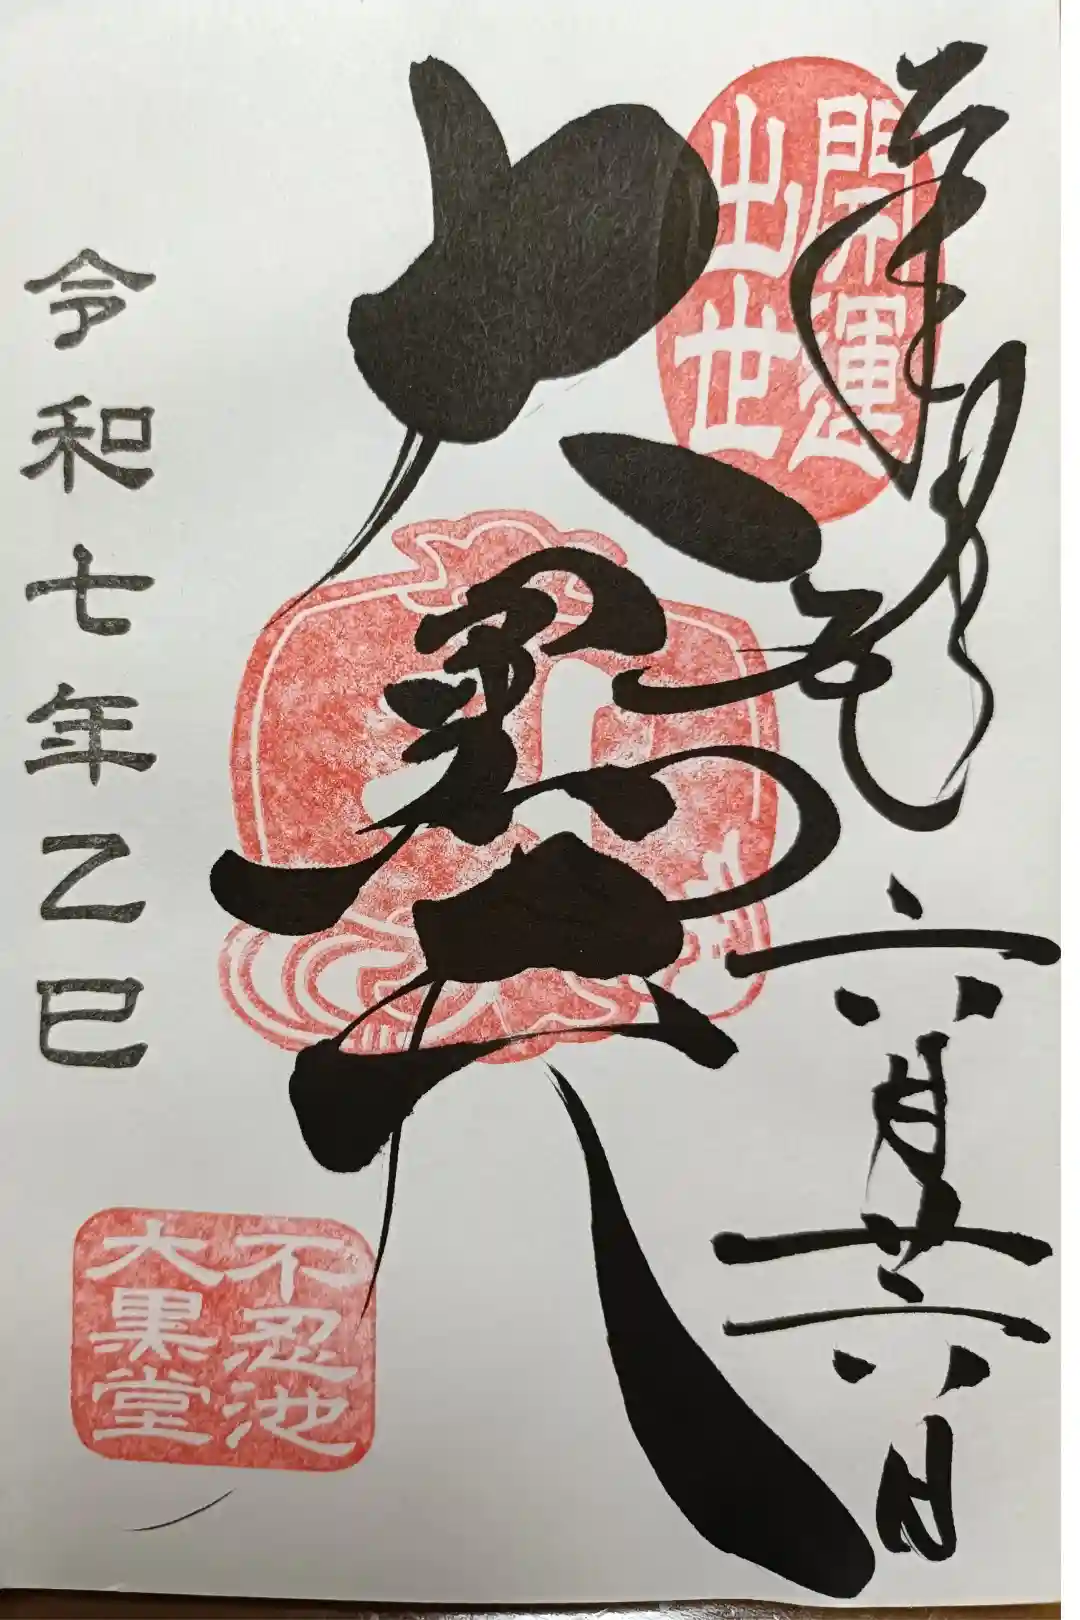 開運
出世
六月廿六日
大黒天
令和七年乙巳
不忍池
大黒堂